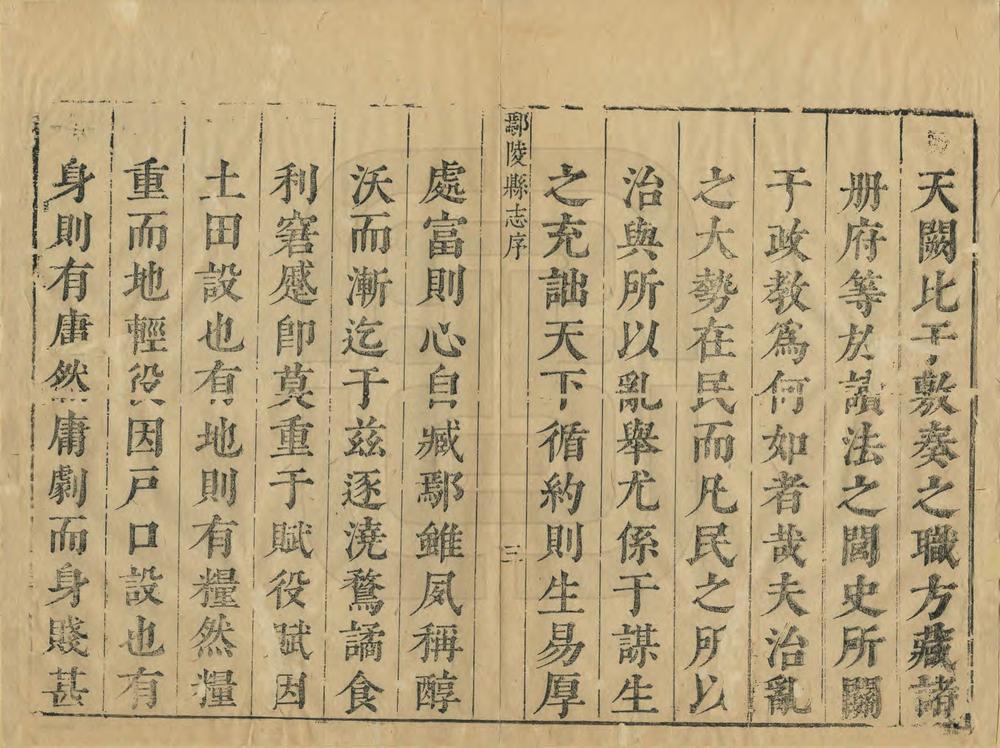 天闕比于敷奏之職方藏諸
册府等於讀法之閭史所關
于政教爲何如者哉夫治亂
之大勢在民而凡民之所以
治與所以亂舉尤係于謀生
之充詘天下循約則生易厚
鄢陵縣志序
三
處富則心自臧鄢雖夙稱醇
沃而漸迄于兹逐澆騖譎食
利窘蹙卽莫重于賦役賦因
土田設也有地則有糧然糧
重而地輕役因戸口設也有
身則有庸然庸劇而身賤甚